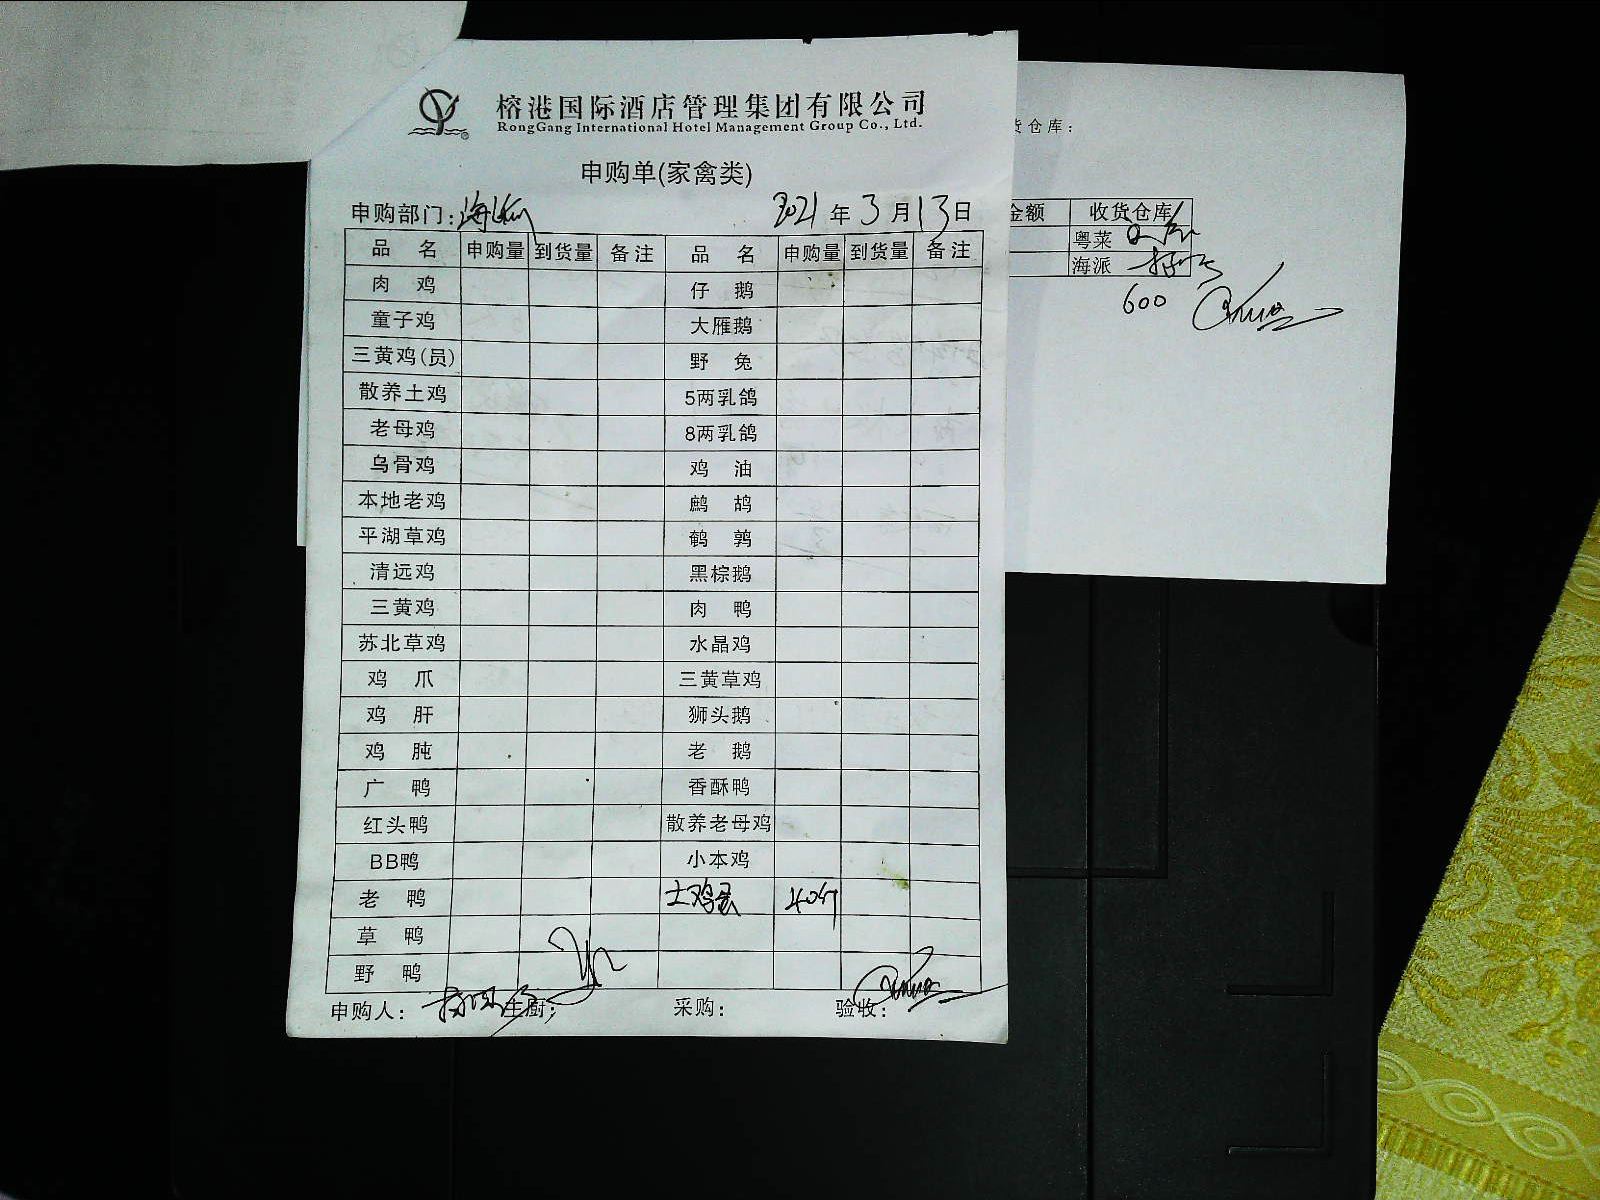 榕港国际酒店管理集团有限公司
RongGang International Hotel Management Group Co., Ltd.
申购单(家禽类)
申购部门: 海派 2021年3月13日
品 名 申购量 到货量 备注 品 名 申购量 到货量 备注
肉 鸡 仔 鹅
童子鸡 大雁鹅
三黄鸡(员) 野 兔
散养土鸡 5两乳鸽
老母鸡 8两乳鸽
乌骨鸡 鸡 油
本地老鸡 鹧 鸪
平湖草鸡 鹌 鹑
清远鸡 黑棕鹅
三黄鸡 肉 鸭
苏北草鸡 水晶鸡
鸡 爪 三黄草鸡
鸡 肝 狮头鹅
鸡 肫 老 鹅
广 鸭 香酥鸭
红头鸭 散养老母鸡
BB鸭 小本鸡
老 鸭 土鸡蛋 40斤
草 鸭
野 鸭
申购人: 主厨: 采购: 验收:
货仓库:
金额 收货仓库
粤菜
海派
600